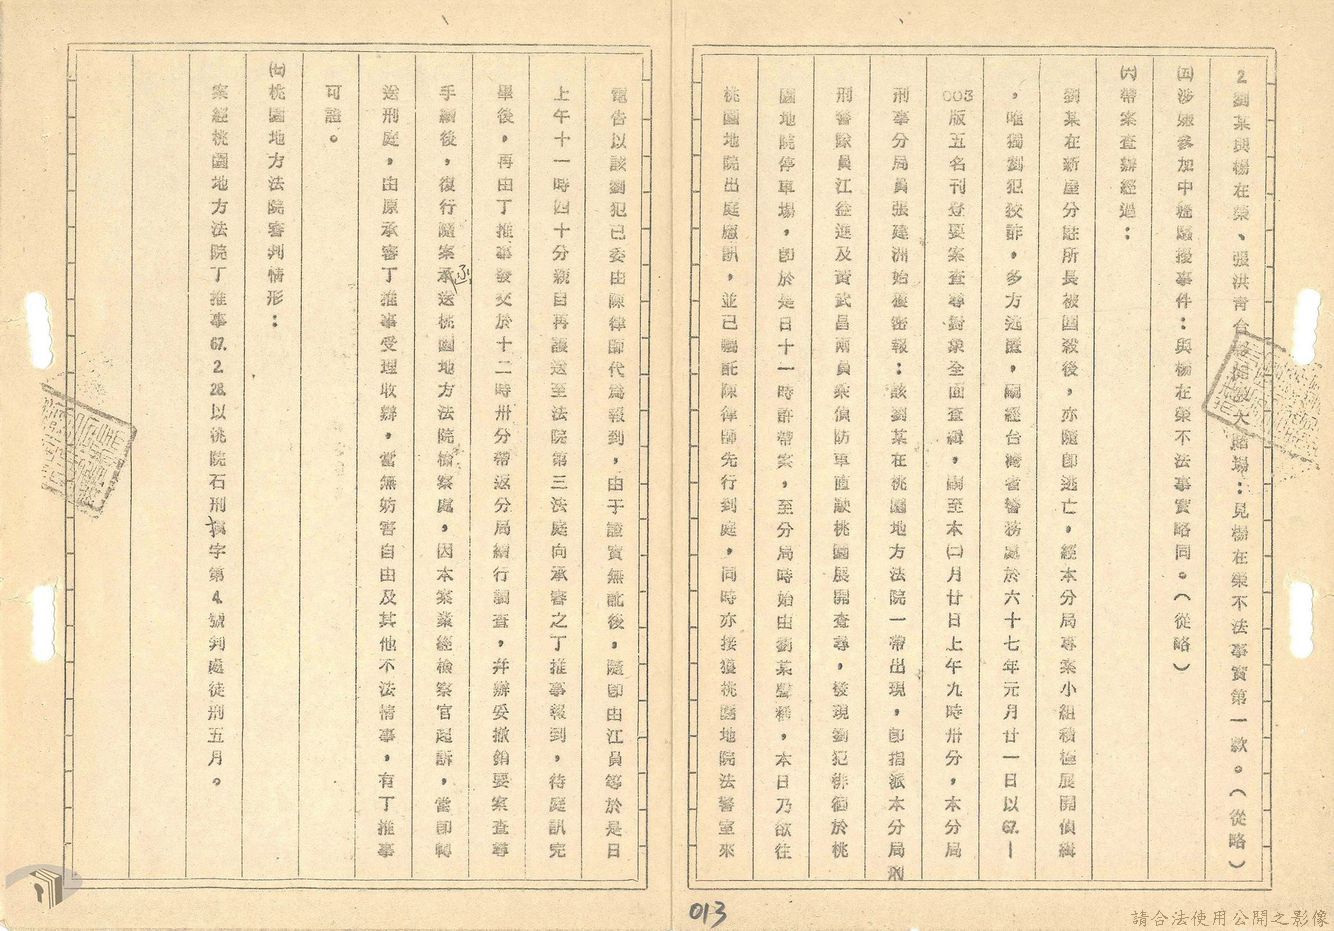 2.劉某與楊在榮、張洪青合夥經營大賭場:見楊在榮不法事實第一款。(從略)
㈤涉嫌參加中壢騷擾事件:與楊在榮不法事實略同。(從略)
㈥帶案查辦經過:
劉某在新屋分駐所長被圍殺後,亦隨即逃亡,經本分局專案小組積極展開偵緝
,唯獨劉犯狡詐,多方逃匿,嗣經台灣省警務處於六十七年元月廿一日以67.1
003版五名刊登要案查尋對象全面查緝,嗣至本㈡月廿日上午九時卅分,本分局
刑事分局員張建洲始獲密報:該劉某在桃園地方法院一帶出現,即指派本分局刑
刑警隊員江益進及黃武昌兩員乘偵防車直駛桃園展開查尋,發現劉犯徘徊於桃
園地院停車場,即於是日十一時許帶案,至分局時始由劉某聲稱,本日乃欲往
桃園地院出庭應訊,並已囑託陳律師先行到庭,同時亦接獲桃園地院法警室來
電告以該劉犯已委由陳律師代為報到,由于證實無訛後,隨即由江員等於是日
上午十一時四十分親自再護送至法院第三法庭向承審之丁推事報到,待庭訊完
畢後,再由丁推事發交於十二時卅分帶返分局續行調查,并辦妥撤銷要案查尋
手續後,復行隨案函送桃園地方法院檢察處,因本案業經檢察官起訴,當即轉
送刑庭,由原承審丁推事受理收辦,當無妨害自由及其他不法情事,有丁推事
可證。
㈦桃園地方法院審判情形:
案經桃園地方法院丁推事67.2.28.以桃院石刑字第4.號判處徒刑五月。
013
請合法使用公開之影像